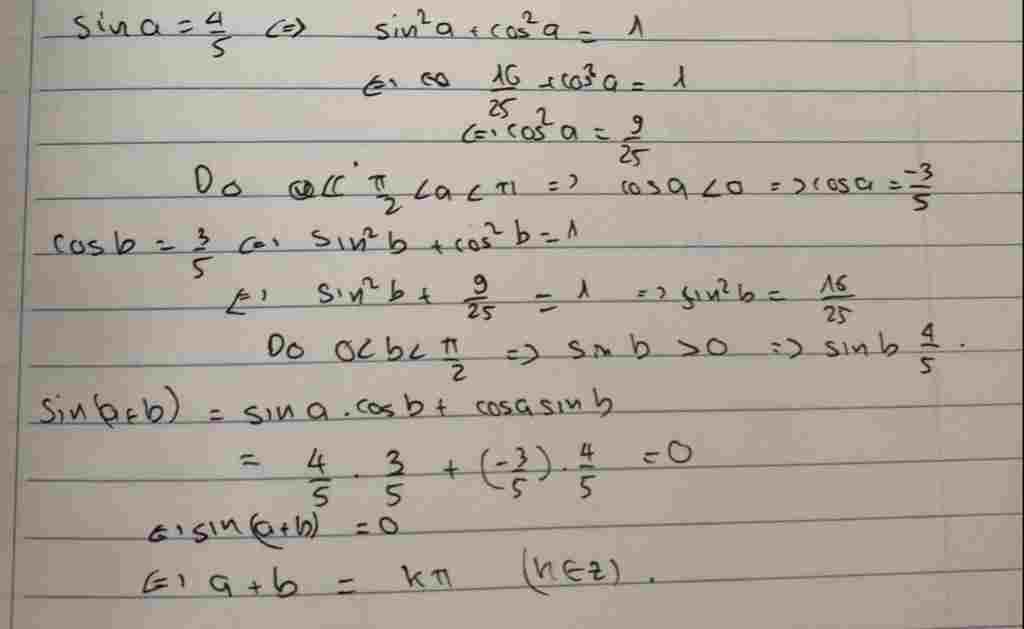 sin a = 4/5 <=> sin²a + cos²a = 1
<=> 16/25 + cos²a = 1
<=> cos²a = 9/25
Do π/2 < a < π => cos a < 0 => cos a = -3/5
cos b = 3/5 <=> sin²b + cos²b = 1
<=> sin²b + 9/25 = 1 => sin²b = 16/25
Do 0 < b < π/2 => sin b > 0 => sin b 4/5.
sin(a+b) = sin a . cos b + cos a sin b
= 4/5 . 3/5 + (-3/5) . 4/5 = 0
<=> sin(a+b) = 0
<=> a + b = kπ (k ∈ Z).